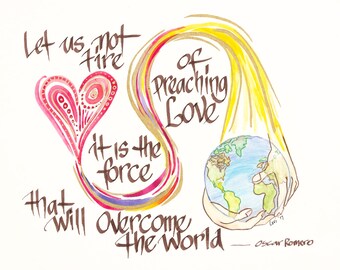 Let us not
tire
of
preaching
Love
it is the
force
that
will overcome
the world
Oscar Romero